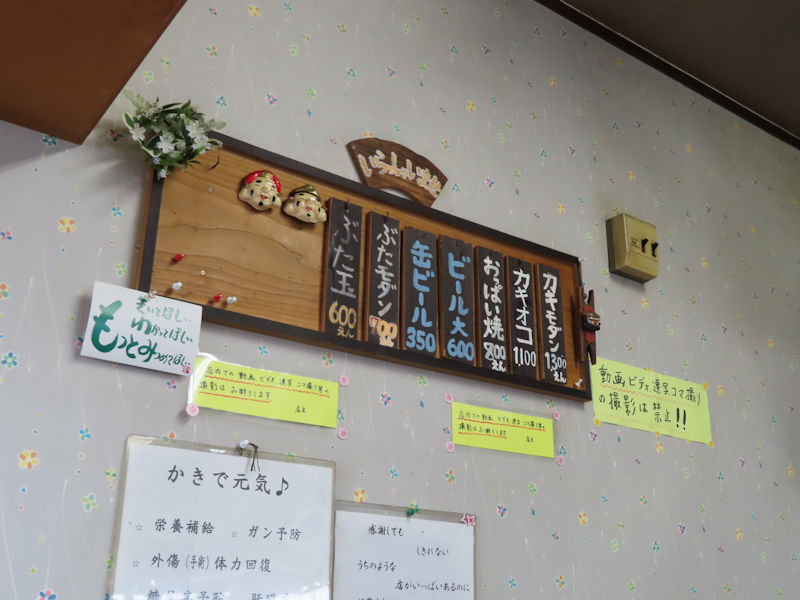 いらっしゃいませ
ぶた玉
600えん
ぶたモダン
700えん
缶ビール
350
ビール大
600
おっぱい焼
800えん
カキオコ
1,100
カキモダン
1,300えん
きいてほしい
わかってほしい
もっとみつめてほしい
店内での 動画 ビデオ 連写 コマ撮り等の
撮影はお断りします
店主
店内での 動画 ビデオ 連写 コマ撮り等の
撮影はお断りします
店主
動画,ビデオ,連写,コマ撮り
の撮影は 禁止!!
かきで元気♪
☆ 栄養補給 ☆ ガン予防
☆ 外傷(手術)体力回復
感謝しても
しきれない
うちのような
店がいっぱいあるのに